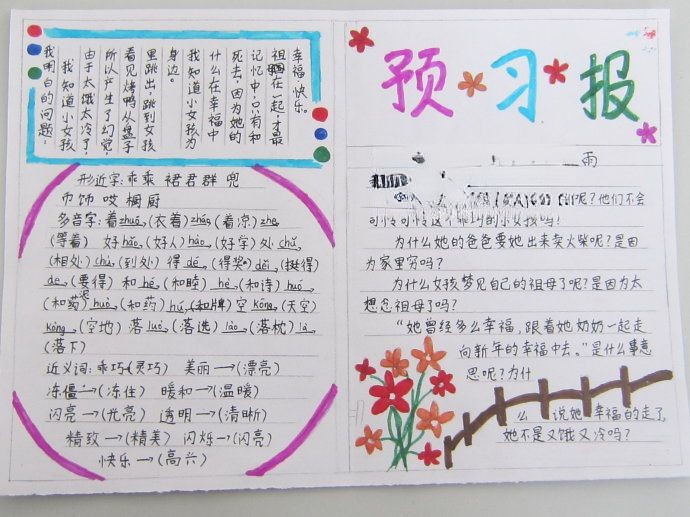 预习报
我明白的问题:
我知道小女孩
由于太饿太冷了,
所以产生了幻觉,
看见烤鸭从盘子
里跳出,跳到女孩
身边。
我知道小女孩为
什么在幸福中
死去,因为她的
记忆中,只有和
在一起,才最
幸福快乐。
形近字:乖乘 裙君群 兜
巾饰 哎 橱厨
多音字:着zhuó(衣着)zháo(着凉)zhe
(等着) 好hǎo(好人)hào(好学)处chǔ
(相处)chù(到处)得dé(得奖)děi(挺得
de(要得) 和hé(和睦)hè(和诗)huó
(和泥)huò(和药)hú(和牌)空kōng(天空)
kòng(空地)落luò(落选)lào(落枕)là
(落下)
近义词:乖巧→(灵巧) 美丽→(漂亮)
冻僵→(冻住) 暖和→(温暖)
闪亮→(光亮) 透明→(清晰)
精致→(精美) 闪烁→(闪亮)
快乐→(高兴)
雨
呢?他们不会
的小女孩吗!
为什么她的爸爸要她出来卖火柴呢?是因
为家里穷吗?
为什么女孩梦见自己的祖母了呢?是因为太
想念祖母了吗?
“她曾经多么幸福,跟着她奶奶一起走
向新年的幸福中去。”是什么意
思呢?为什
么 说她幸福的走了,
她不是又饿又冷吗?